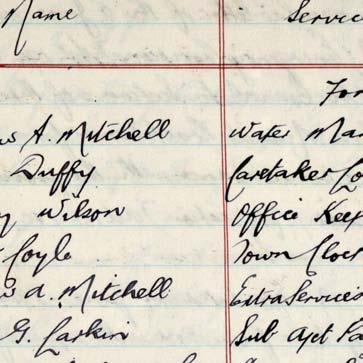 Name Servic
For
s A. Mitchell Water Ma
Duffy Caretaker Co
y Wilson Office Keep
Coyle Town Cloc
s A. Mitchell Extra Services
G. Larkin Sub Agt Pa